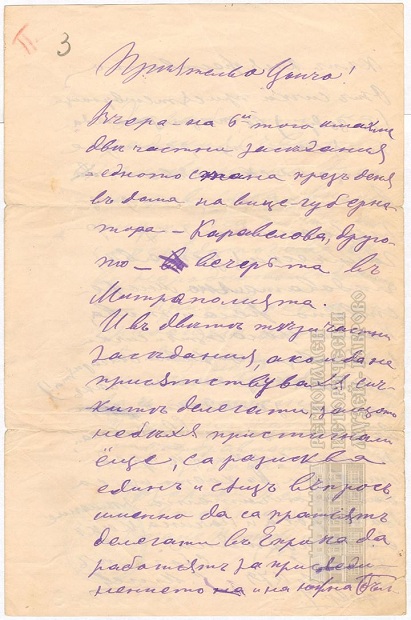 П.
3
Приятельо Цончо!
Вчера на 6ий того имахме
два частни заседания
едното стана презъ деня
въ дома на вице губерна-
тора – Каравелова, друго-
то – вечерьта въ
Митрополията.
И въ двътъ тъзи частни
заседания, ако и да не
присятствуваха сич-
китъ делегати, защото
небяха пристигнали
ёще, са разисква
единъ и сящъ въпросъ,
именно да са пратятъ
делегати въ Европа да
работятъ за присъеди-
нението на и на южна Бъл
РЕГИОНАЛЕН
ИСТОРИЧЕСКИ
МУЗЕЙ